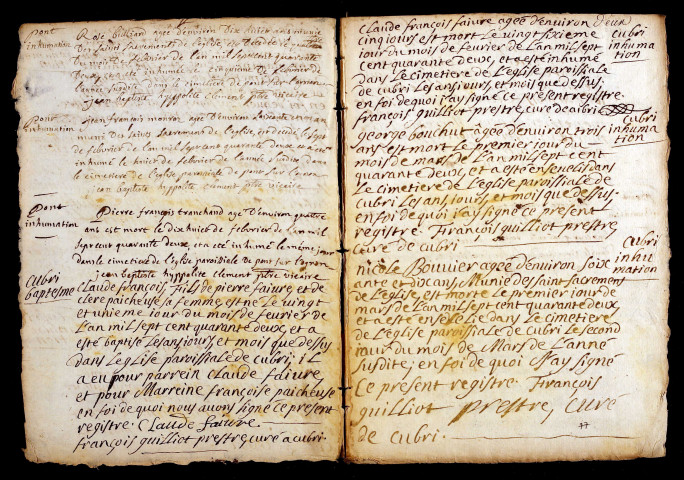 Pont
inhumation
Rose billiard agée d'environ dix huict ans munie
des saincts sacrements de l'eglise, est decedée le
de febvrier de l'an mil sept cent quarante
deux, et a eté inhumé le cinquieme de febvrier de
l'année susdite dans le cimetiere de pont sur l'ognon
jean baptiste hyppolite clement ptre vicaire
Pont
inhumation
jean françois monroz agé d'environ soixante ans
munie des saints sacremens de l'eglise, est decedé le sept
de febvrier de l'an mil sept cent quarante deux et a eté
inhumé le huict de febvrier de l'année susdite dans
le cimetiere de l'eglise paroissiale de pont sur l'ognon
jean baptiste hyppolite clement ptre vicaire
Pont
inhumation
Pierre françois tranchand agé d'environ quattre
ans est mort le dix huict de febvrier de l'an mil
sept cent quarante deux, et a eté inhumé le même jour
dans le cimetiere de l'eglise paroissiale de pont sur l'ognon
jean baptiste hyppolite clement ptre vicaire
Cubri
baptesme
Claude françois fils de pierre faivre, et de
clere paicheuse sa femme, est né le vingt
et unieme jour du mois de fevrier de
L'an mil sept cent quarante deux, et a
esté baptisé Les ans jours, et mois que dessus
dans L'eglise paroissiale de cubri; il
a eu pour parrein Claude faivre
et pour Marreine françoise paicheuse
en foi de quoi nous avons signé ce present
registre. Claude faivre.
françois quilliot prestre, curé a cubri.
Claude françois faivre agée d'environ deux
cinq jours est mort Le vingt sixieme
jour du mois de fevrier de L'an mil sept
cent quarante deux, et a esté inhumé
dans Le cimetiere de L'eglise paroissiale
de cubri Les ans jours, et mois que dessus,
en foi de quoi j'ay signé ce present registre
françois quilliot prestre, curé de cubri.
cubri
inhuma
tion
george bouchut agée d'environ trois
ans est mort Le premier jour du
mois de mars de L'an mil sept cent
quarante deux, et a esté enseveli dans
Le cimetiere de L'eglise paroissiale de
cubri Les ans, jours, et mois que dessus.
en foi de quoi j'ay signé ce present
registre. François quilliot prestre
curé de cubri
cubri
inhuma
tion
nicole Bouvier agée d'environ soix
ante et dix ans, Munie des saint sacremens
de L'eglise, est morte Le premier jour de
mars de L'an mil sept cent quarante deux,
et a esté ensevelie dans Le cimetiere
de L'eglise paroissiale de cubri Le second
jour du mois de Mars de L'anné
susdite; en foi de quoi J'ay signé
ce present registre. François
quilliot prestre, curé
de cubri.
cubri
inhu
mation